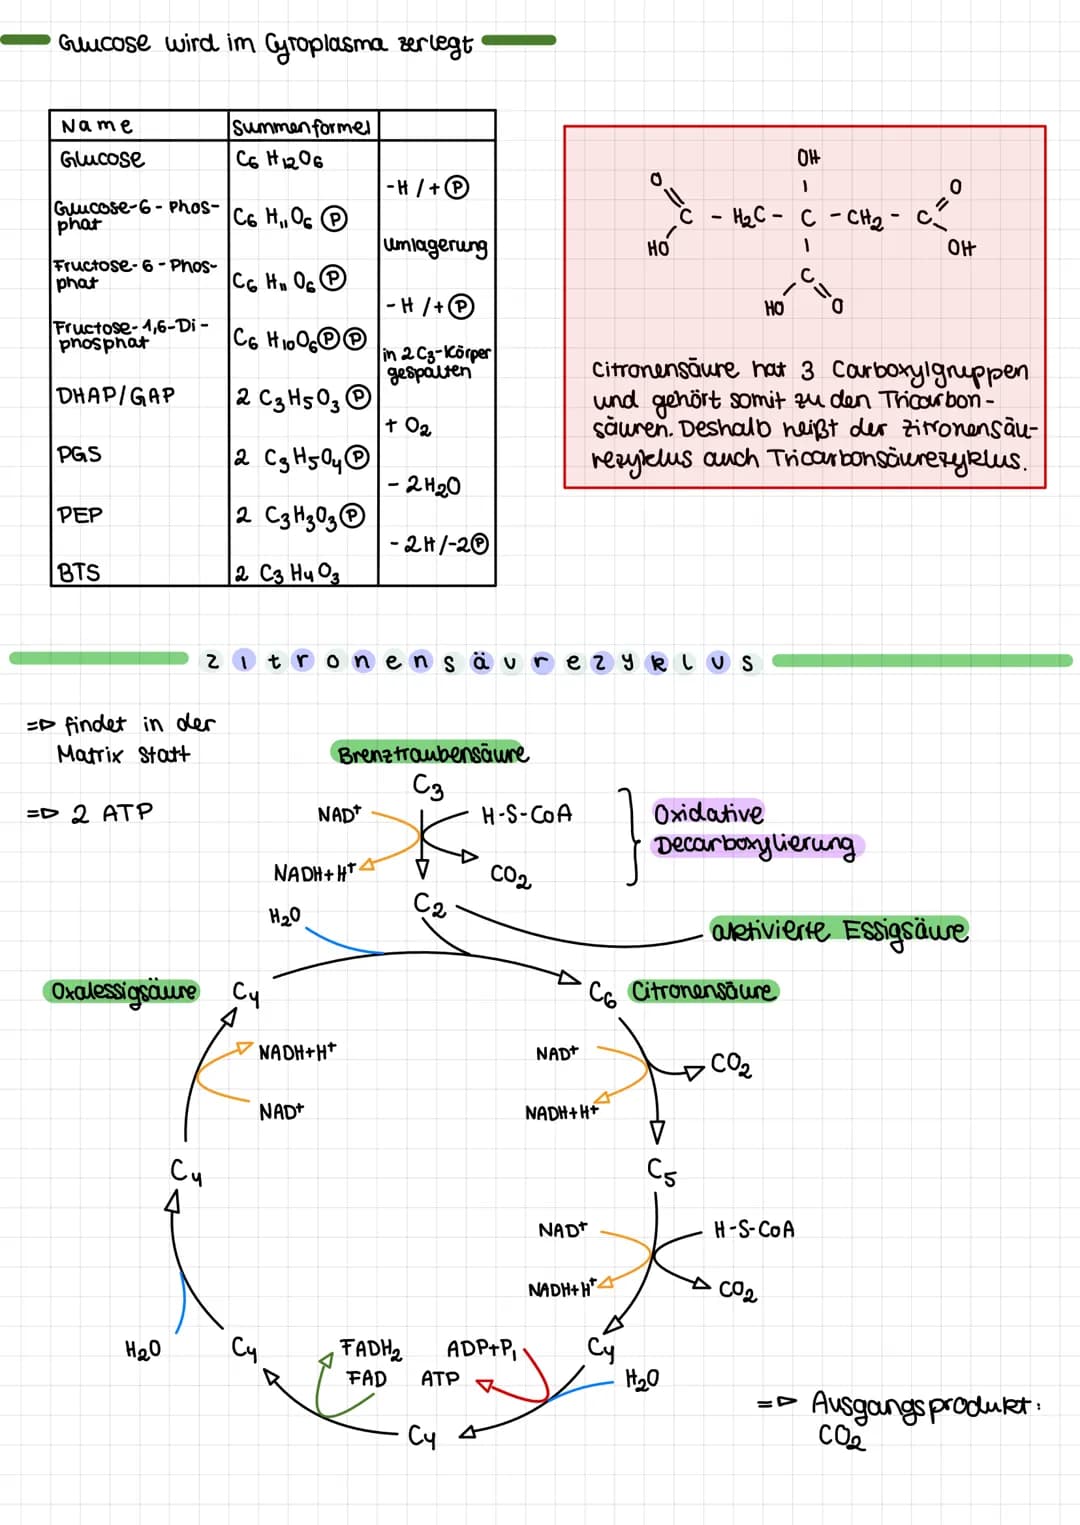 Glucose wird im Cyroplasma zerlegt
Name Summenformel
Glucose C6 H12O6
-H / + P
Glucose-6-Phos-
phat C6 H11 O6 P
Umlagerung
Fructose-6-Phos-
phat C6 H11 O6 P
-H / + P
Fructose-1,6-Di-
phosphat C6 H10 O6 P P
in 2 C3-Körper
gespalten
DHAP/GAP 2 C3H5O3 P
+ O2
PGS 2 C3H5O4 P
- 2H2O
PEP 2 C3H3O3 P
- 2H/-2 P
BTS 2 C3 H4 O3
OH
O O
C - H2C - C - CH2 - C
HO OH
C
HO O
Citronensäure hat 3 Carboxylgruppen
und gehört somit zu den Tricarbon-
säuren. Deshalb heißt der Zitronensäu-
rezyklus auch Tricarbonsäurezyklus.
Zitronensäurezyklus
=> findet in der
Matrix statt
=> 2 ATP
Brenztraubensäure
C3
NAD+ H-S-CoA
Oxidative
Decarboxylierung
NADH+H+ CO2
C2
H2O
aktivierte Essigsäure
Oxalessigsäure C4
C6 Citronensäure
NADH+H+ NAD+ CO2
NAD+ NADH+H+
C4 C5
NAD+ H-S-CoA
NADH+H+ CO2
H2O C4 FADH2 ADP+Pi C4
FAD ATP H2O
C4
=> Ausgangsprodukt:
CO2